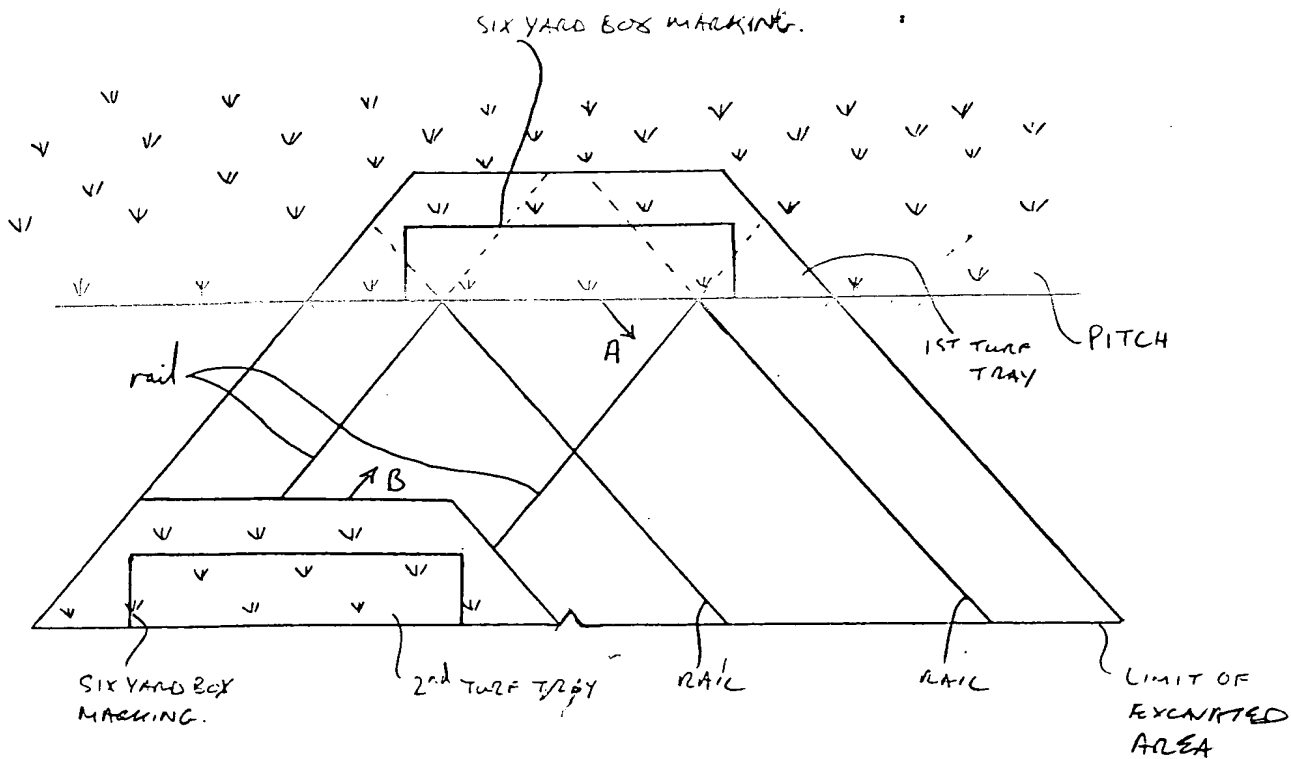 SIX YARD BOX MARKING.
A
1ST TURF
TRAY
PITCH
rail
B
SIX YARD BOX
MARKING.
2nd TURF TRAY
RAIL
RAIL
LIMIT OF
EXCAVATED
AREA